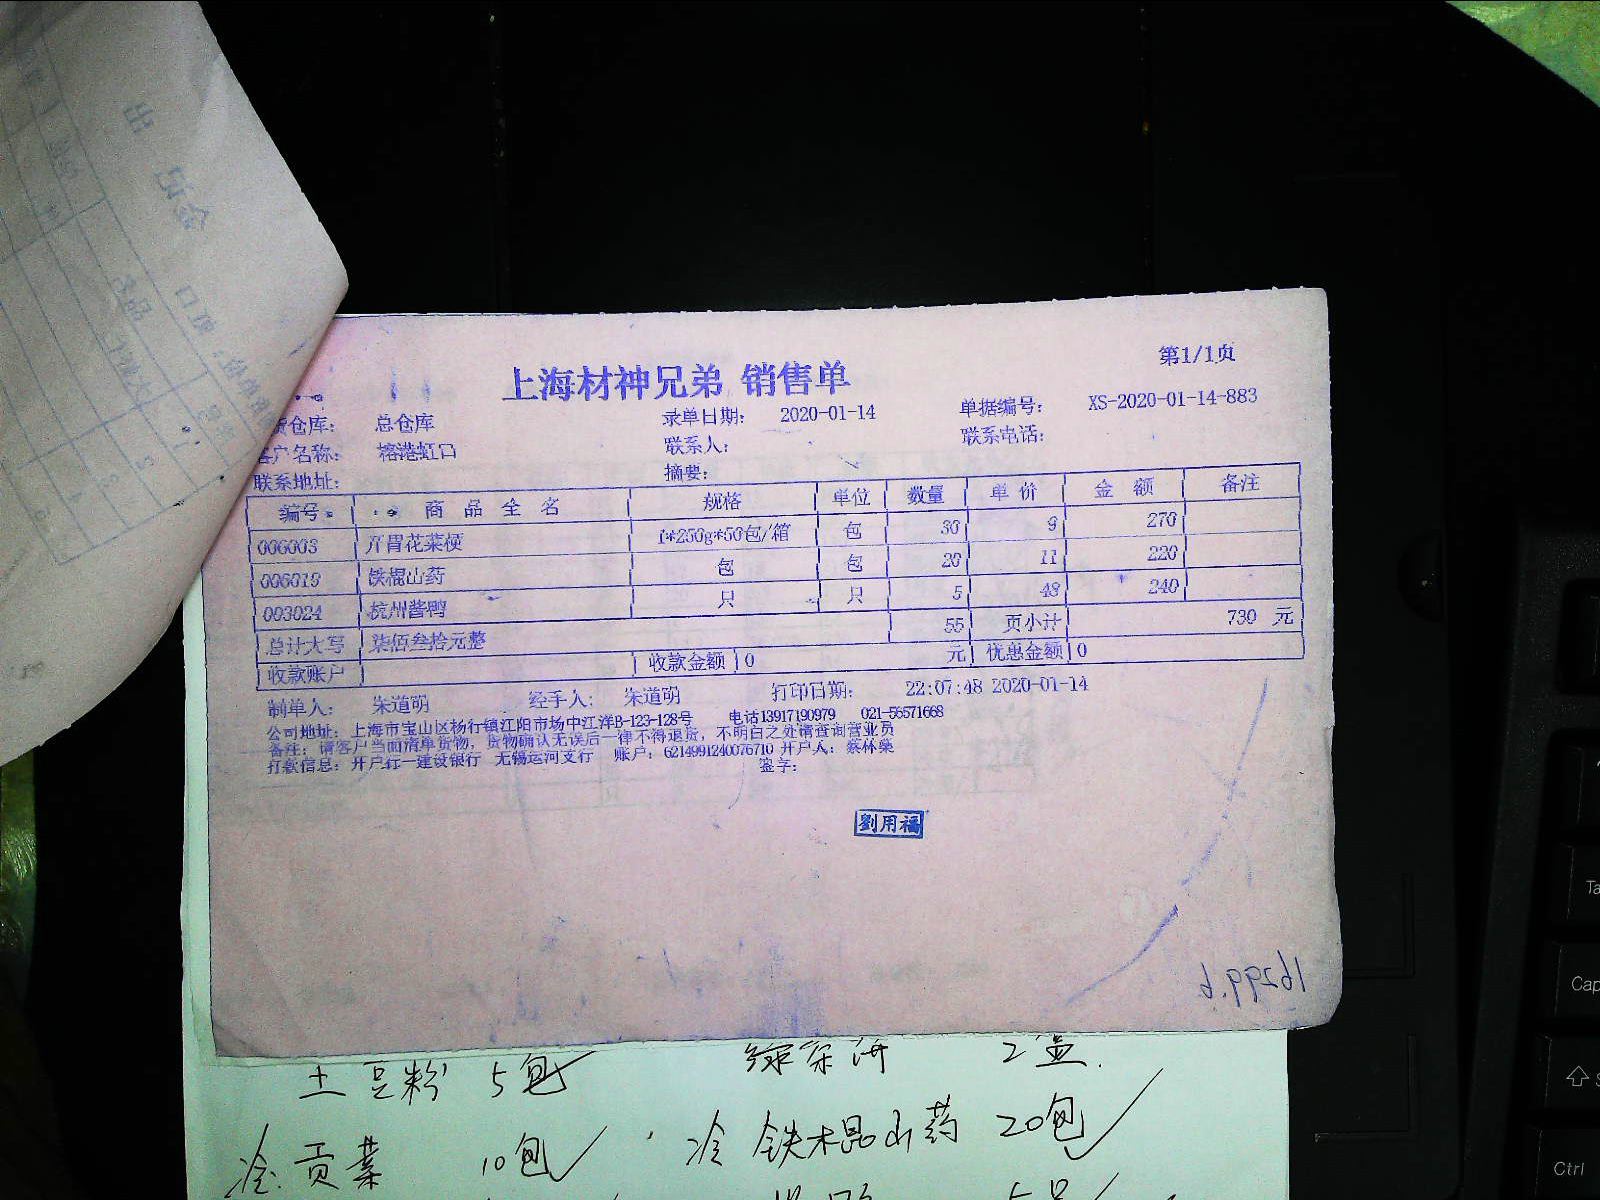 第1/1页
上海材神兄弟 销售单
货仓库: 总仓库 录单日期: 2020-01-14 单据编号: XS-2020-01-14-883
客户名称: 榕港虹口 联系人: 联系电话:
联系地址: 摘要:
编号 商品全名 规格 单位 数量 单价 金额 备注
006003 开胃花菜梗 1*250g*50包/箱 包 30 9 270
006013 铁棍山药 包 包 20 11 220
003024 杭州酱鸭 只 只 5 48 240
总计大写 柒佰叁拾元整 55 页小计 730 元
收款账户 收款金额 0 元 优惠金额 0
制单人: 朱道明 经手人: 朱道明 打印日期: 22:07:48 2020-01-14
公司地址: 上海市宝山区杨行镇江阳市场中江洋B-123-128号 电话13917190979 021-56571668
备注: 请客户当面清单货物, 货物确认无误后一律不得退货, 不明白之处请查询营业员
打款信息: 开户行—建设银行 无锡运河支行 账户: 6214991240076710 开户人: 蔡林荣
签字:
劉用福
土豆粉 5包 2盒.
冷.贡菜 10包 冷 铁棍山药 20包
Ctrl